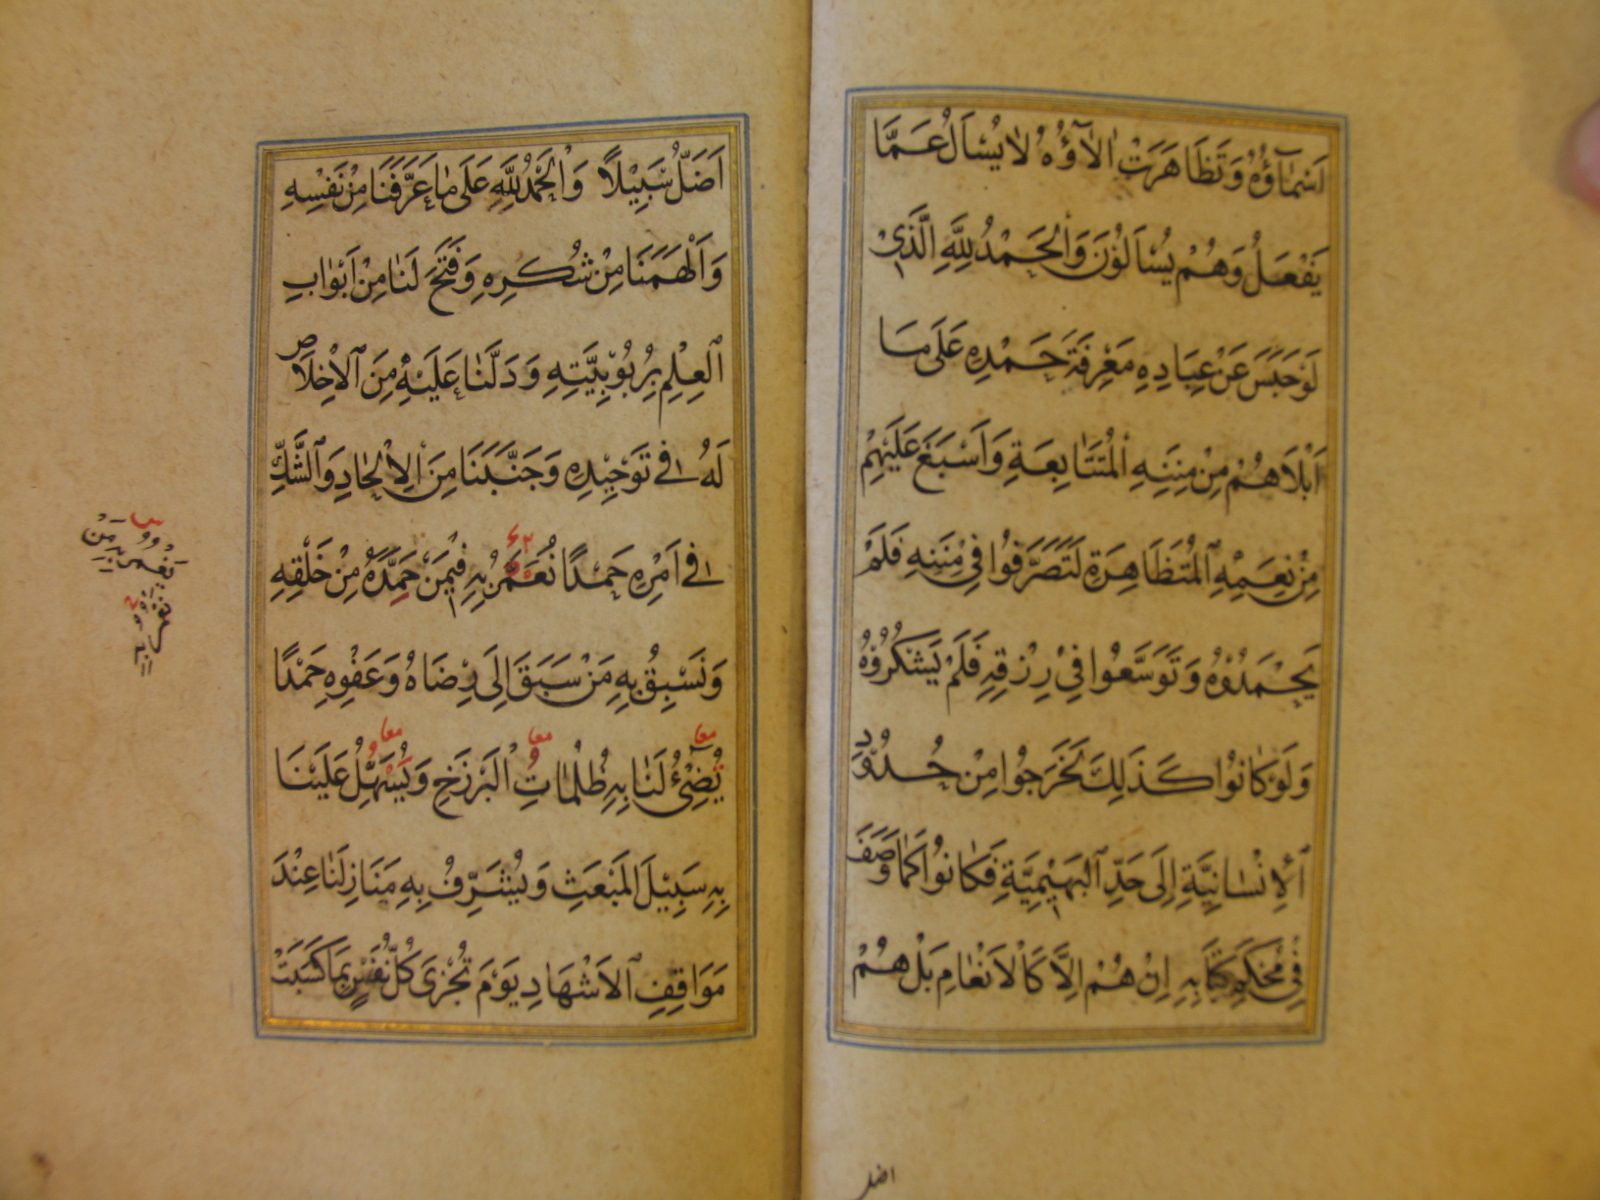 اَسْمَاؤُهُ وَتَظَاهَرَتْ الَاؤُهُ لَا يُسْأَلُ عَمَّا
يَفْعَلُ وَهُمْ يُسْأَلُوْنَ وَالْحَمْدُ لِلّٰهِ الَّذِیْ
لَوْ حَبَسَ عَنْ عِبَادِهِ مَعْرِفَةَ حَمْدِهِ عَلَى مَا
اَبْلَاهُمْ مِنْ مِنَنِهِ الْمُتَتَابِعَةِ وَاَسْبَغَ عَلَيْهِمْ
مِنْ نِعَمِهِ الْمُتَظَاهِرَةِ لَتَصَرَّفُوا فِي مِنَنِهِ فَلَمْ
يَحْمَدُوْهُ وَتَوَسَّعُوا فِیْ رِزْقِهِ فَلَمْ يَشْكُرُوْهُ
وَلَوْ كَانُوا كَذَلِكَ لَخَرَجُوا مِنْ حُدُوْدِ
الْاِنْسَانِيَّةِ اِلَى حَدِّ الْبَهِيْمِيَّةِ فَكَانُوا كَمَا وَصَفَ
فِیْ مُحْكَمِ كِتَابِهِ اِنْ هُمْ اِلَّا كَالْاَنْعَامِ بَلْ هُمْ
اضل
اَضَلُّ سَبِيْلًا وَالْحَمْدُ لِلّٰهِ عَلَى مَا عَرَّفَنَا مِنْ نَفْسِهِ
وَاَلْهَمَنَا مِنْ شُكْرِهِ وَفَتَحَ لَنَا مِنْ اَبْوَابِ
الْعِلْمِ بِرُبُوْبِيَّتِهِ وَدَلَّنَا عَلَيْهِ مِنَ الْاِخْلَاصِ
لَهُ فِي تَوْحِيْدِهِ وَجَنَّبَنَا مِنَ الْاِلْحَادِ وَالشَّكِّ
فِي اَمْرِهِ حَمْدًا نُعَمَّرُ بِهِ فِيْمَنْ حَمِدَهُ مِنْ خَلْقِهِ
وَنَسْبِقُ بِهِ مَنْ سَبَقَ اِلَى رِضَاهُ وَعَفْوِهِ حَمْدًا
يُضِيْءُ لَنَا بِهِ ظُلُمَاتُ الْبَرْزَخِ وَيُسَهِّلُ عَلَيْنَا
بِهِ سَبِيْلَ الْمَبْعَثِ وَيُشَرِّفُ بِهِ مَنَازِلَنَا عِنْدَ
مَوَاقِفِ الْاَشْهَادِ يَوْمَ تُجْزَى كُلُّ نَفْسٍ بِمَا كَسَبَتْ
معا
معا
معا